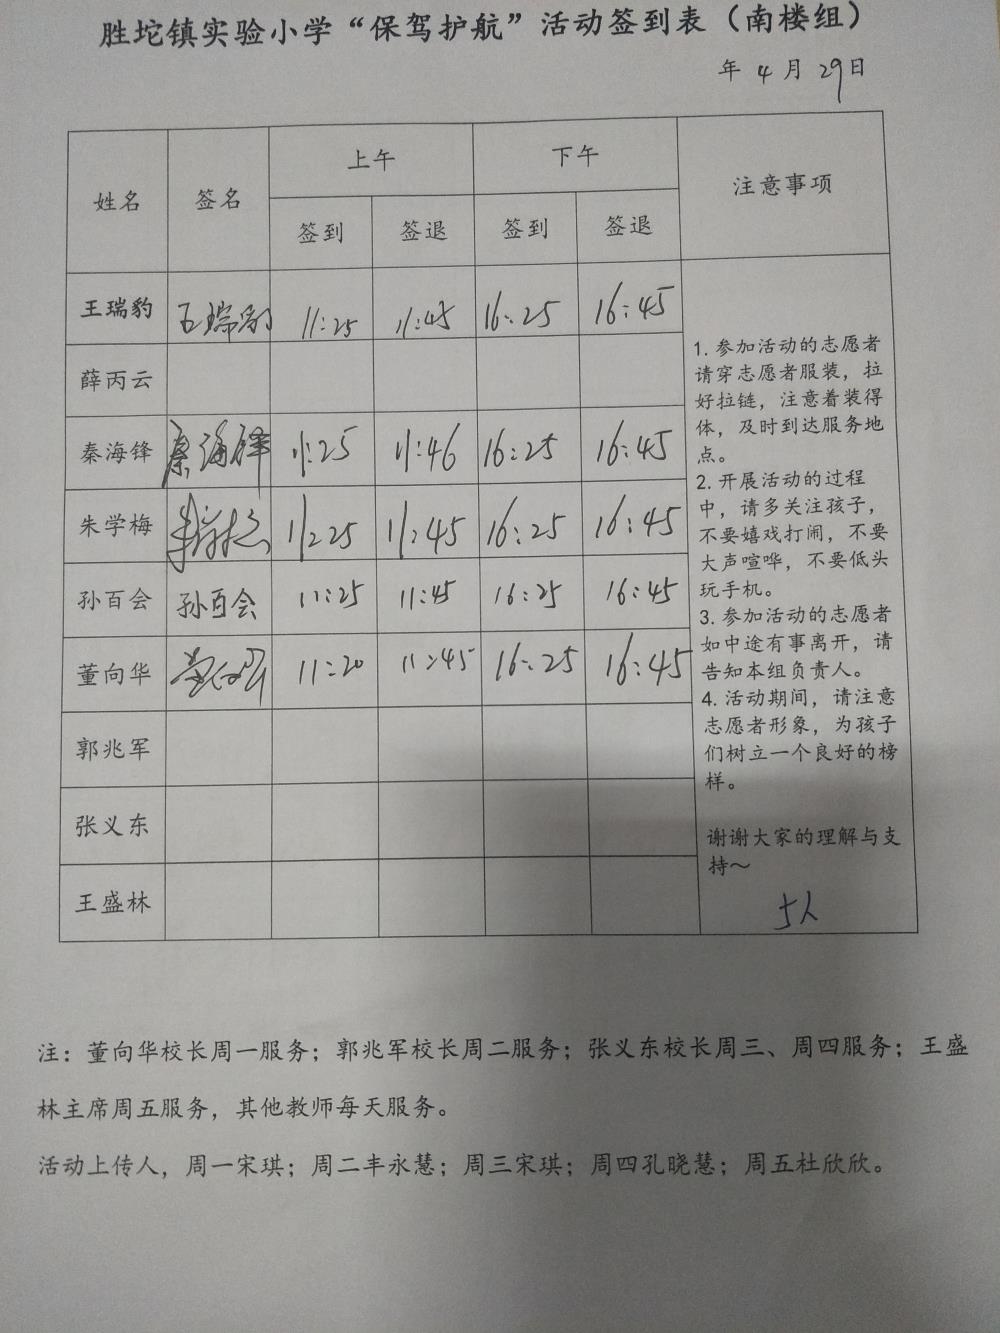 胜坨镇实验小学“保驾护航”活动签到表（南楼组）
年 4 月 29日
姓名 签名 上午 下午 注意事项
签到 签退 签到 签退
王瑞豹 王瑞豹 11:25 11:45 16:25 16:45
薛丙云
秦海锋 秦海锋 11:25 11:46 16:25 16:45
朱学梅 朱学梅 11:25 11:45 16:25 16:45
孙百会 孙百会 11:25 11:45 16:25 16:45
董向华 董向华 11:20 11:45 16:25 16:45
郭兆军
张义东
王盛林
1. 参加活动的志愿者
请穿志愿者服装，拉
好拉链，注意着装得
体，及时到达服务地
点。
2. 开展活动的过程
中，请多关注孩子，
不要嬉戏打闹，不要
大声喧哗，不要低头
玩手机。
3. 参加活动的志愿者
如中途有事离开，请
告知本组负责人。
4. 活动期间，请注意
志愿者形象，为孩子
们树立一个良好的榜
样。
谢谢大家的理解与支
持～
5人
注：董向华校长周一服务；郭兆军校长周二服务；张义东校长周三、周四服务；王盛
林主席周五服务，其他教师每天服务。
活动上传人，周一宋琪；周二丰永慧；周三宋琪；周四孔晓慧；周五杜欣欣。